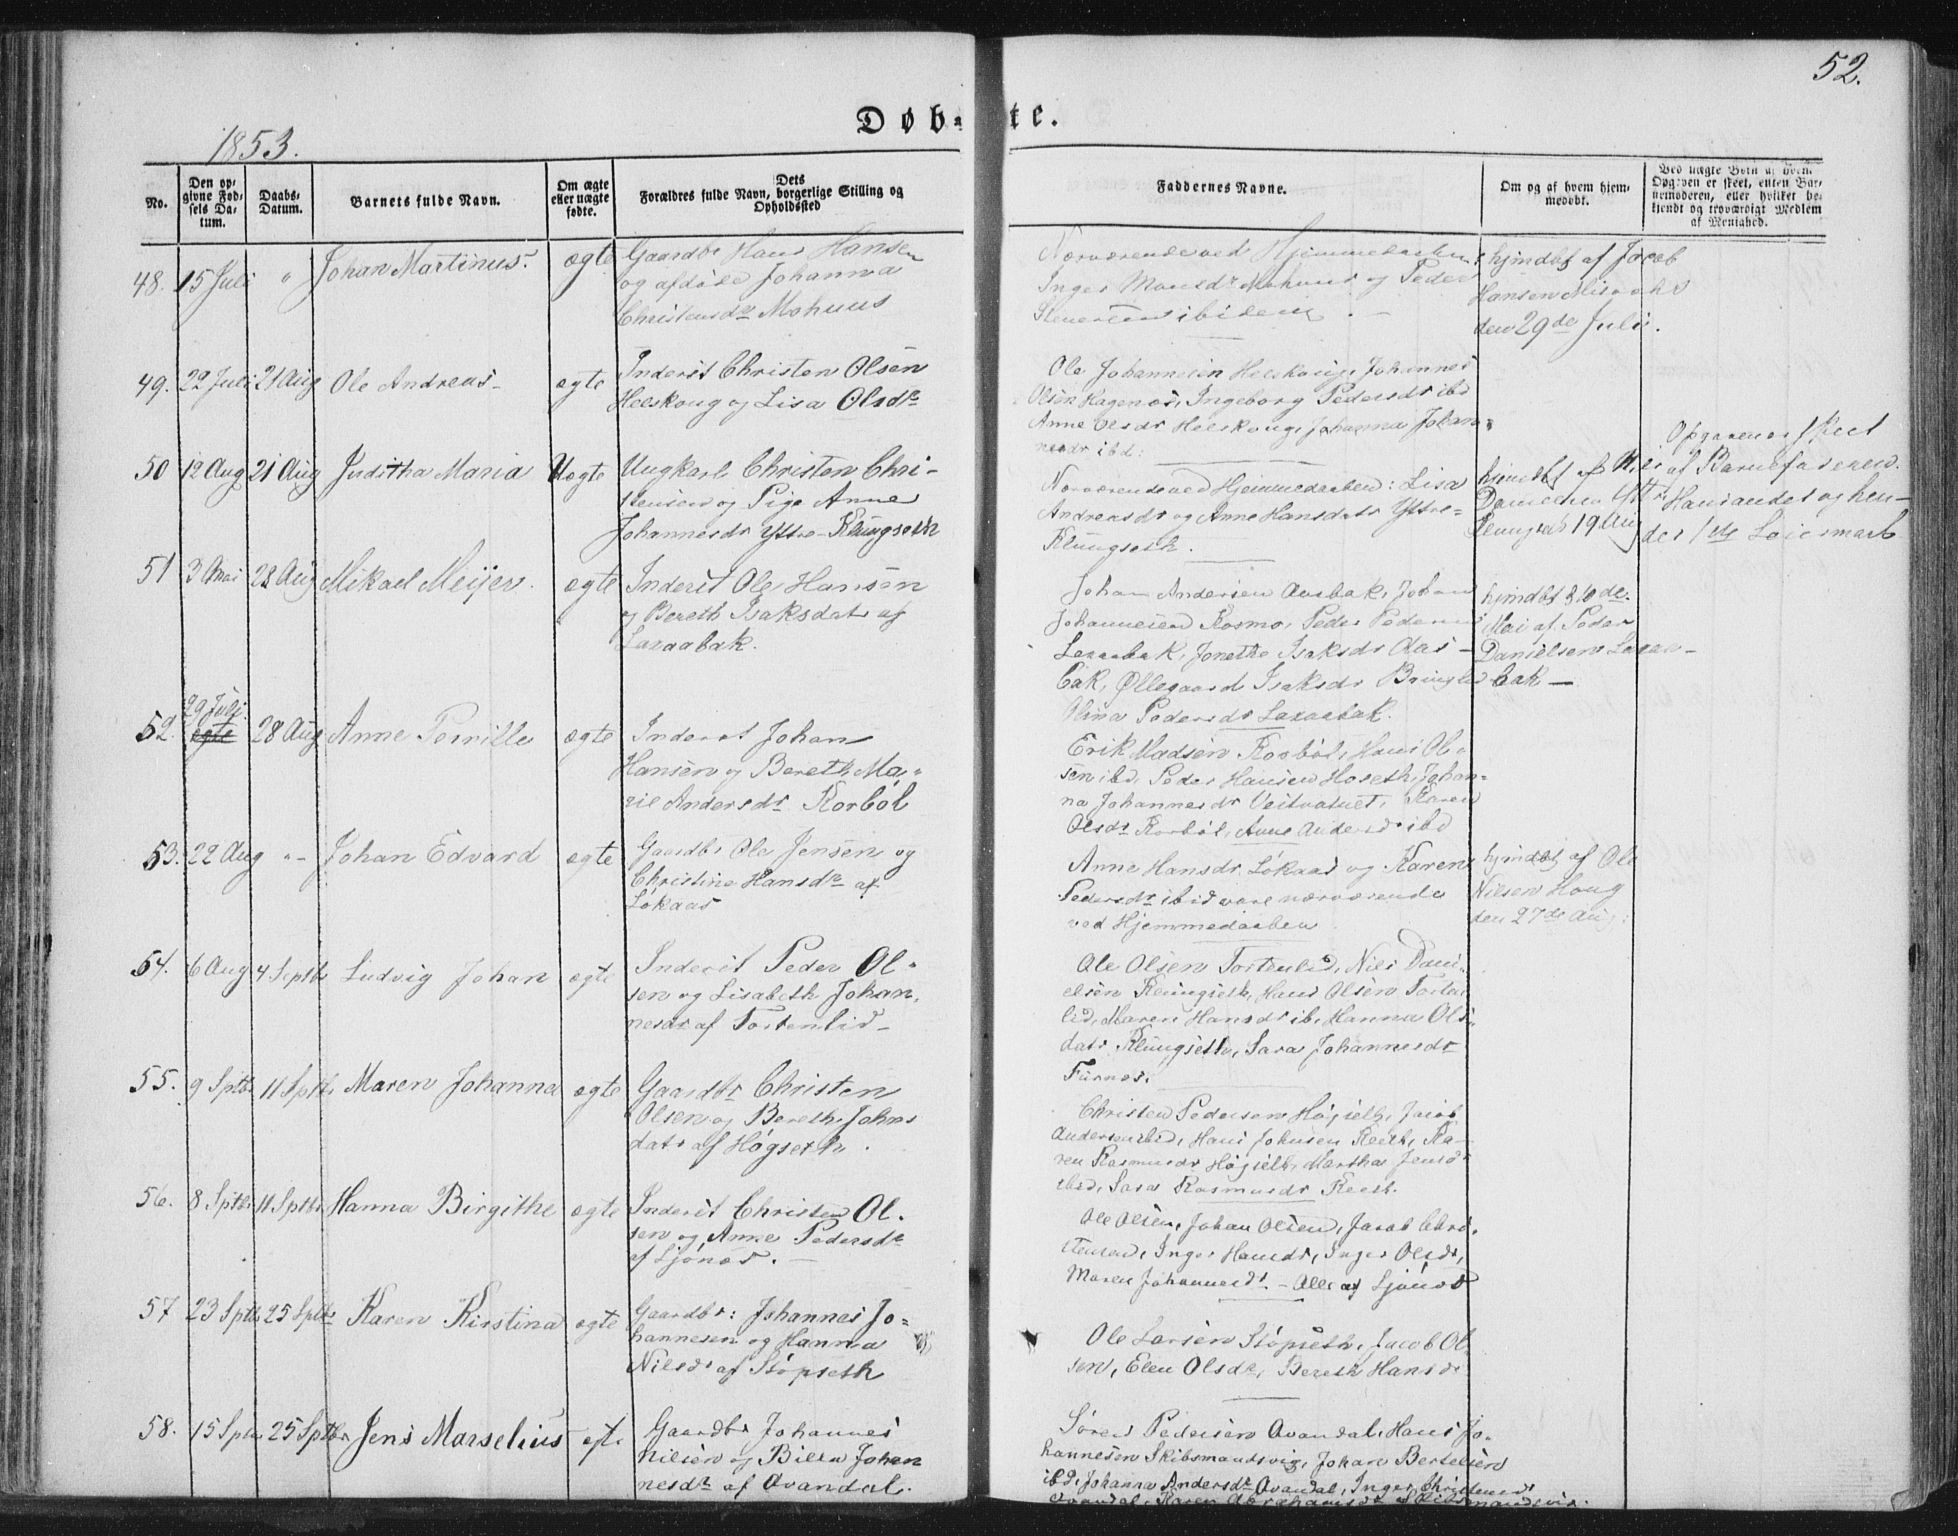 52.
Døb-te.
1853.
No.
Den op-
givne Fød-
sels Da-
tum.
Daabs-
Datum.
Barnets fulde Navn.
Om ægte
eller uægte
fødte.
Dets
Forældres fulde Navn, borgerlige Stilling og
Opholdssted
Faddernes Navne.
Om og af hvem hjem-
medøbt.
Ved uægte Børn af hvem
Opgaven er skeet, enten Bar-
nemoderen, eller hvilket be-
kjendt og troværdigt Medlem
af Menighed.
48. 15 Juli " Johan Martinus. ægte
Gaardbr Hans Hansen
og afdøde Johanna
Christensdr Mohuus
Nærværende ved Hjemmedaaben
Inger Monsdr Mohuus og Peder
ibidem.
hjmdbt af Jacob
Hansen
den 29de Juli.
49. 22 Juli 21 Aug Ole Andreas- ægte
Inderst Christen Olsen
Helskoug og Lisa Olsdr
Ole Johannesen Helskoug, Johannes
Olsen Hagenæs, Ingeborg Pedersdr ibd
Anne Olsdr Helskoug, Johanna Johan-
nesdr ibd:
50 12 Aug 21 Aug Juditha Maria Uægte
Ungkarl Christen Chri-
stensen og Pige Anne
Johannesdr Yttre-Klungseth
Nærværende ved Hjemmedaaben: Lisa
Andreasdr og Anne Hansdatr Yttre-
Klungseth.
hjmdbt af Nils
Danielsen Yttr
Klungset 19 Aug
Opgaven er skeet
af Barnefaderen.
Hans andet og hen-
des 1ste Leiermaal
51 3 Mai 28 Aug Mikael Meijer. ægte
Inderst Ole Hansen
og Bereth Isaksdatr af
Laxaabak.
Johan Andersen Aasbak, Johan
Johannesen Rosmo, Peder Peders
Laxaabak, Jonetha Isaksdr Aas-
bak, Øllegaard Isaksdr Bringsli
Olina Pedersdr Laxaabak.
hjmdbt d 10de
Mai af Peder
Danielsen Laxaa-
bak-
52. 29 Juli. 28 Aug Anne Pernille ægte
Inderst Johan
Hansen og Bereth Ma-
rie Andersdr Korbøl
Erik Madsen Korbøl, Hans Ol-
sen ibd, Peder Hansen Hoseth, Johan-
na Johannesdr Veitvatnet, Karen
Olsdr Korbøl, Anne Andersdr ibd
53. 22 Aug "- Johan Edvard ægte
Gaardbr Ole Jensen og
Christine Hansdr af
Løkaas
Anne Hansdr Løkaas og Karen
Pedersdr ibid vare nærværende
ved Hjemmedaaben
hjmdbt af Ole
Nilsen Houg
den 27de Aug.
54. 6 Aug 4 Septbr Ludvig Johan ægte
Inderst Peder Ol-
sen og Lisabeth Johan-
nesdr af Tortenlid-
Ole Olsen Tortenlid, Nils Dani-
elsen Klungseth, Hans Olsen Torten
lid, Maren Hansdr ib, Hanna Ols-
datr Klungseth, Sara Johannesdr
Furnes.
55. 9 Sptbr 11 Sptbr Maren Johanna ægte
Gaardbr Christen
Olsen og Bereth Johns
datr af Høgseth.
Christen Pedersen Høgseth, Jacob
Andersen ibid, Hans Johnsen Reeth, Ka-
ren Rasmusdr Høgseth, Martha Jensdr
ibid, Sara Rasmusdr Reeth.
56. 8 Sptbr 11 Sptbr Hanna Birgithe ægte
Inderst Christen Ol-
sen og Anne Pedersdr
af Sjønæs.-
Ole Olsen, Johan Olsen, Jacob Chri-
stensen, Inger Hansdr, Inger Olsdr,
Maren Johannesdr - Alle af Sjønæs
57 23 Sptbr 25 Sptbr Karen Kirstina ægte
Gaardbr: Johannes Jo-
hannesen og Hanna
Nilsdr af Støpseth
Ole Larsen Støpseth, Jacob Ol
sen, Elen Olsdr, Bereth Hansdr
58. 15 Sptbr 25 Sptbr Jens Marselius ægte
Gaardbr Johannes
Nilsen og Billa Johan
nesdr af Qvandal.
Søren Pedersen Qvandal, Hans Jo-
hannesen Skibsmandsvig, Johan Bertelsen
ibd, Johanna Andersdr Qvandal, Inger Christensdr
Qvandal, Karen Abrahamsdr Skibsmandsvig.